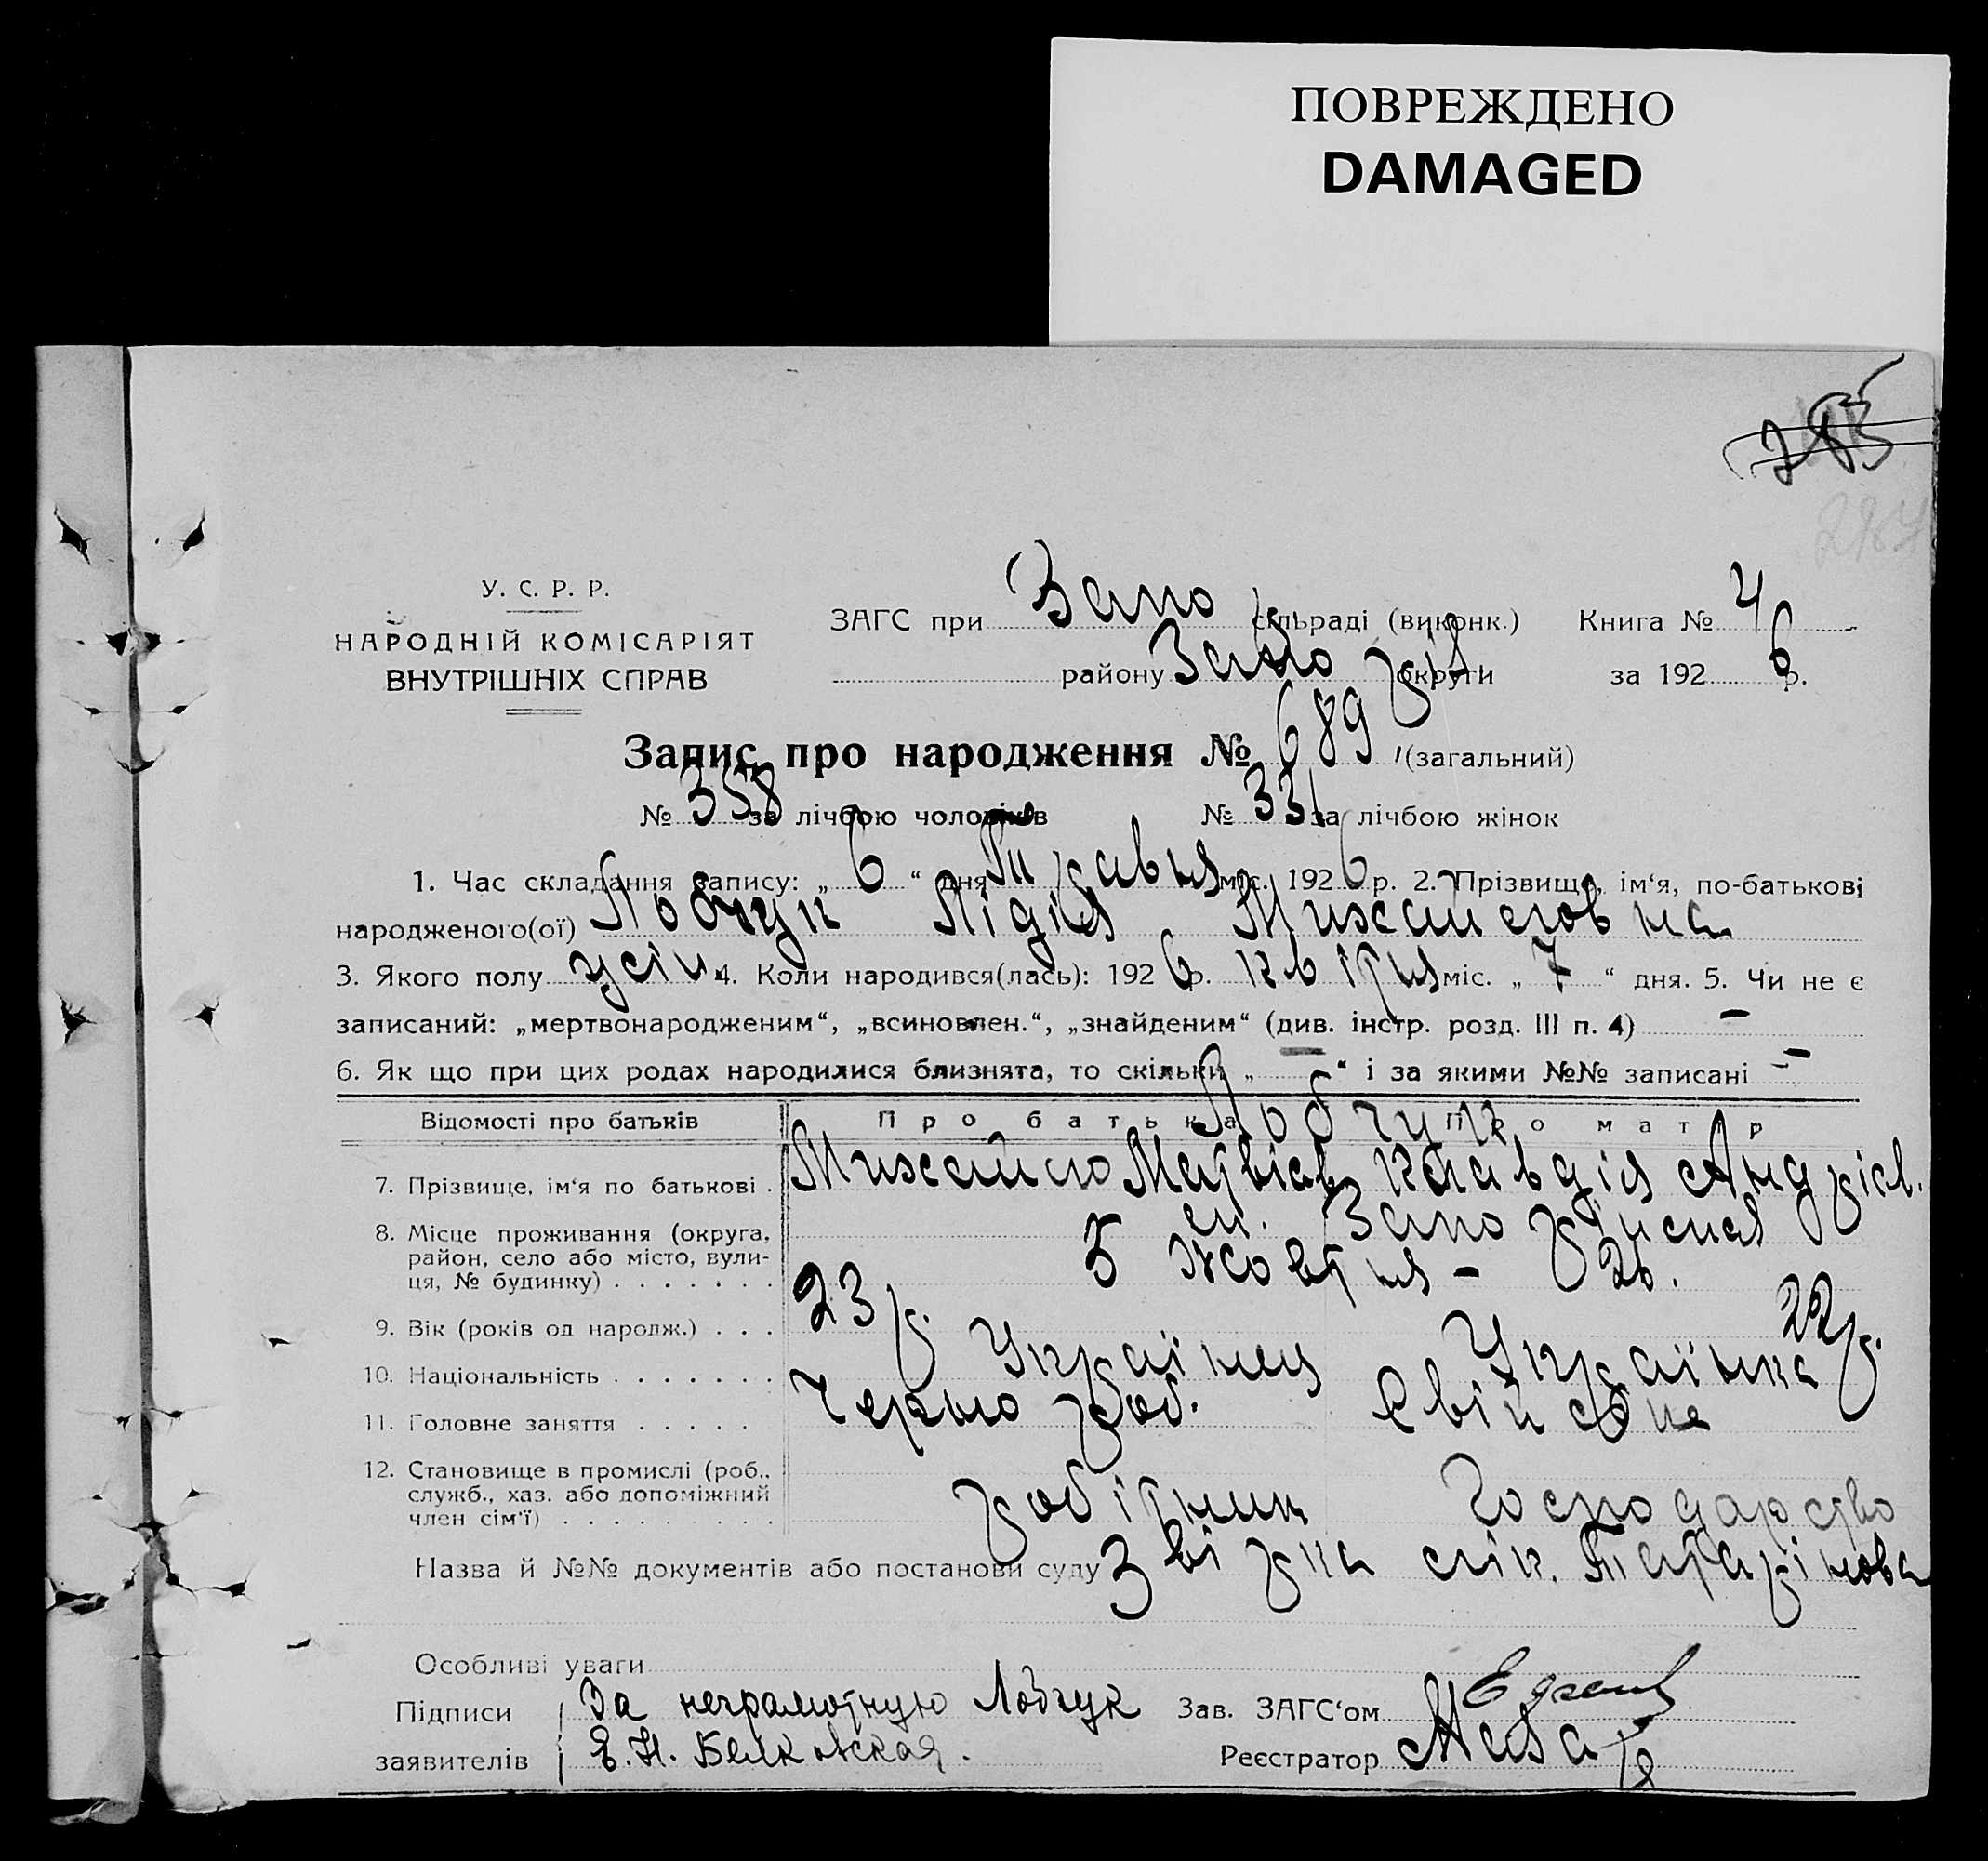 ПОВРЕЖДЕНО
DAMAGED
285
У. С. Р. Р.
НАРОДНІЙ КОМІСАРІЯТ
ВНУТРІШНІХ СПРАВ
ЗАГС при Запо сільраді (виконк.) Книга № 4
району Запо різ. округи за 1926 р.
Запис про народження № 689 (загальний)
№ 358 за лічбою чоловіків № 331 за лічбою жінок
1. Час складання запису: „ 6 “ дня Травня міс. 1926 р. 2. Прізвище, ім‘я, по-батькові
народженого(ої) Лобчук Лідія Михайловна
3. Якого полу жін. 4. Коли народився(лась): 1926 р. квітня міс. „ 7 “ дня. 5. Чи не є
записаний: „мертвонародженим“, „всиновлен.“, „знайденим“ (див. інстр. розд. III п. 4) –
6. Як що при цих родах народилися близнята, то скільки „ – “ і за якими №№ записані –
Відомості про батьків Про батька Про матір
Лобчук
7. Прізвище, ім‘я по батькові . Михайло Матвієв Клавдія Андрієв.
8. Місце проживання (округа, район, село або місто, вулиця, № будинку) . . . . . . . Запо
5 Жовтня – 26.
9. Вік (років од народж.) . . . 23 р. 22 р.
10. Національність . . . . . . . Українец Українка
11. Головне заняття . . . . . Черно роб. Свійське
12. Становище в промислі (роб., служб., хаз. або допоміжний член сім‘ї) . . . . . . . . . робітник Господарство
Назва й №№ документів або постанови суду Звірка лік. Татарінова
Особливі уваги
Підписи За неграмотную Лобчук Зав. ЗАГС‘ом
заявителів Е. Н. Белковская. Реєстратор